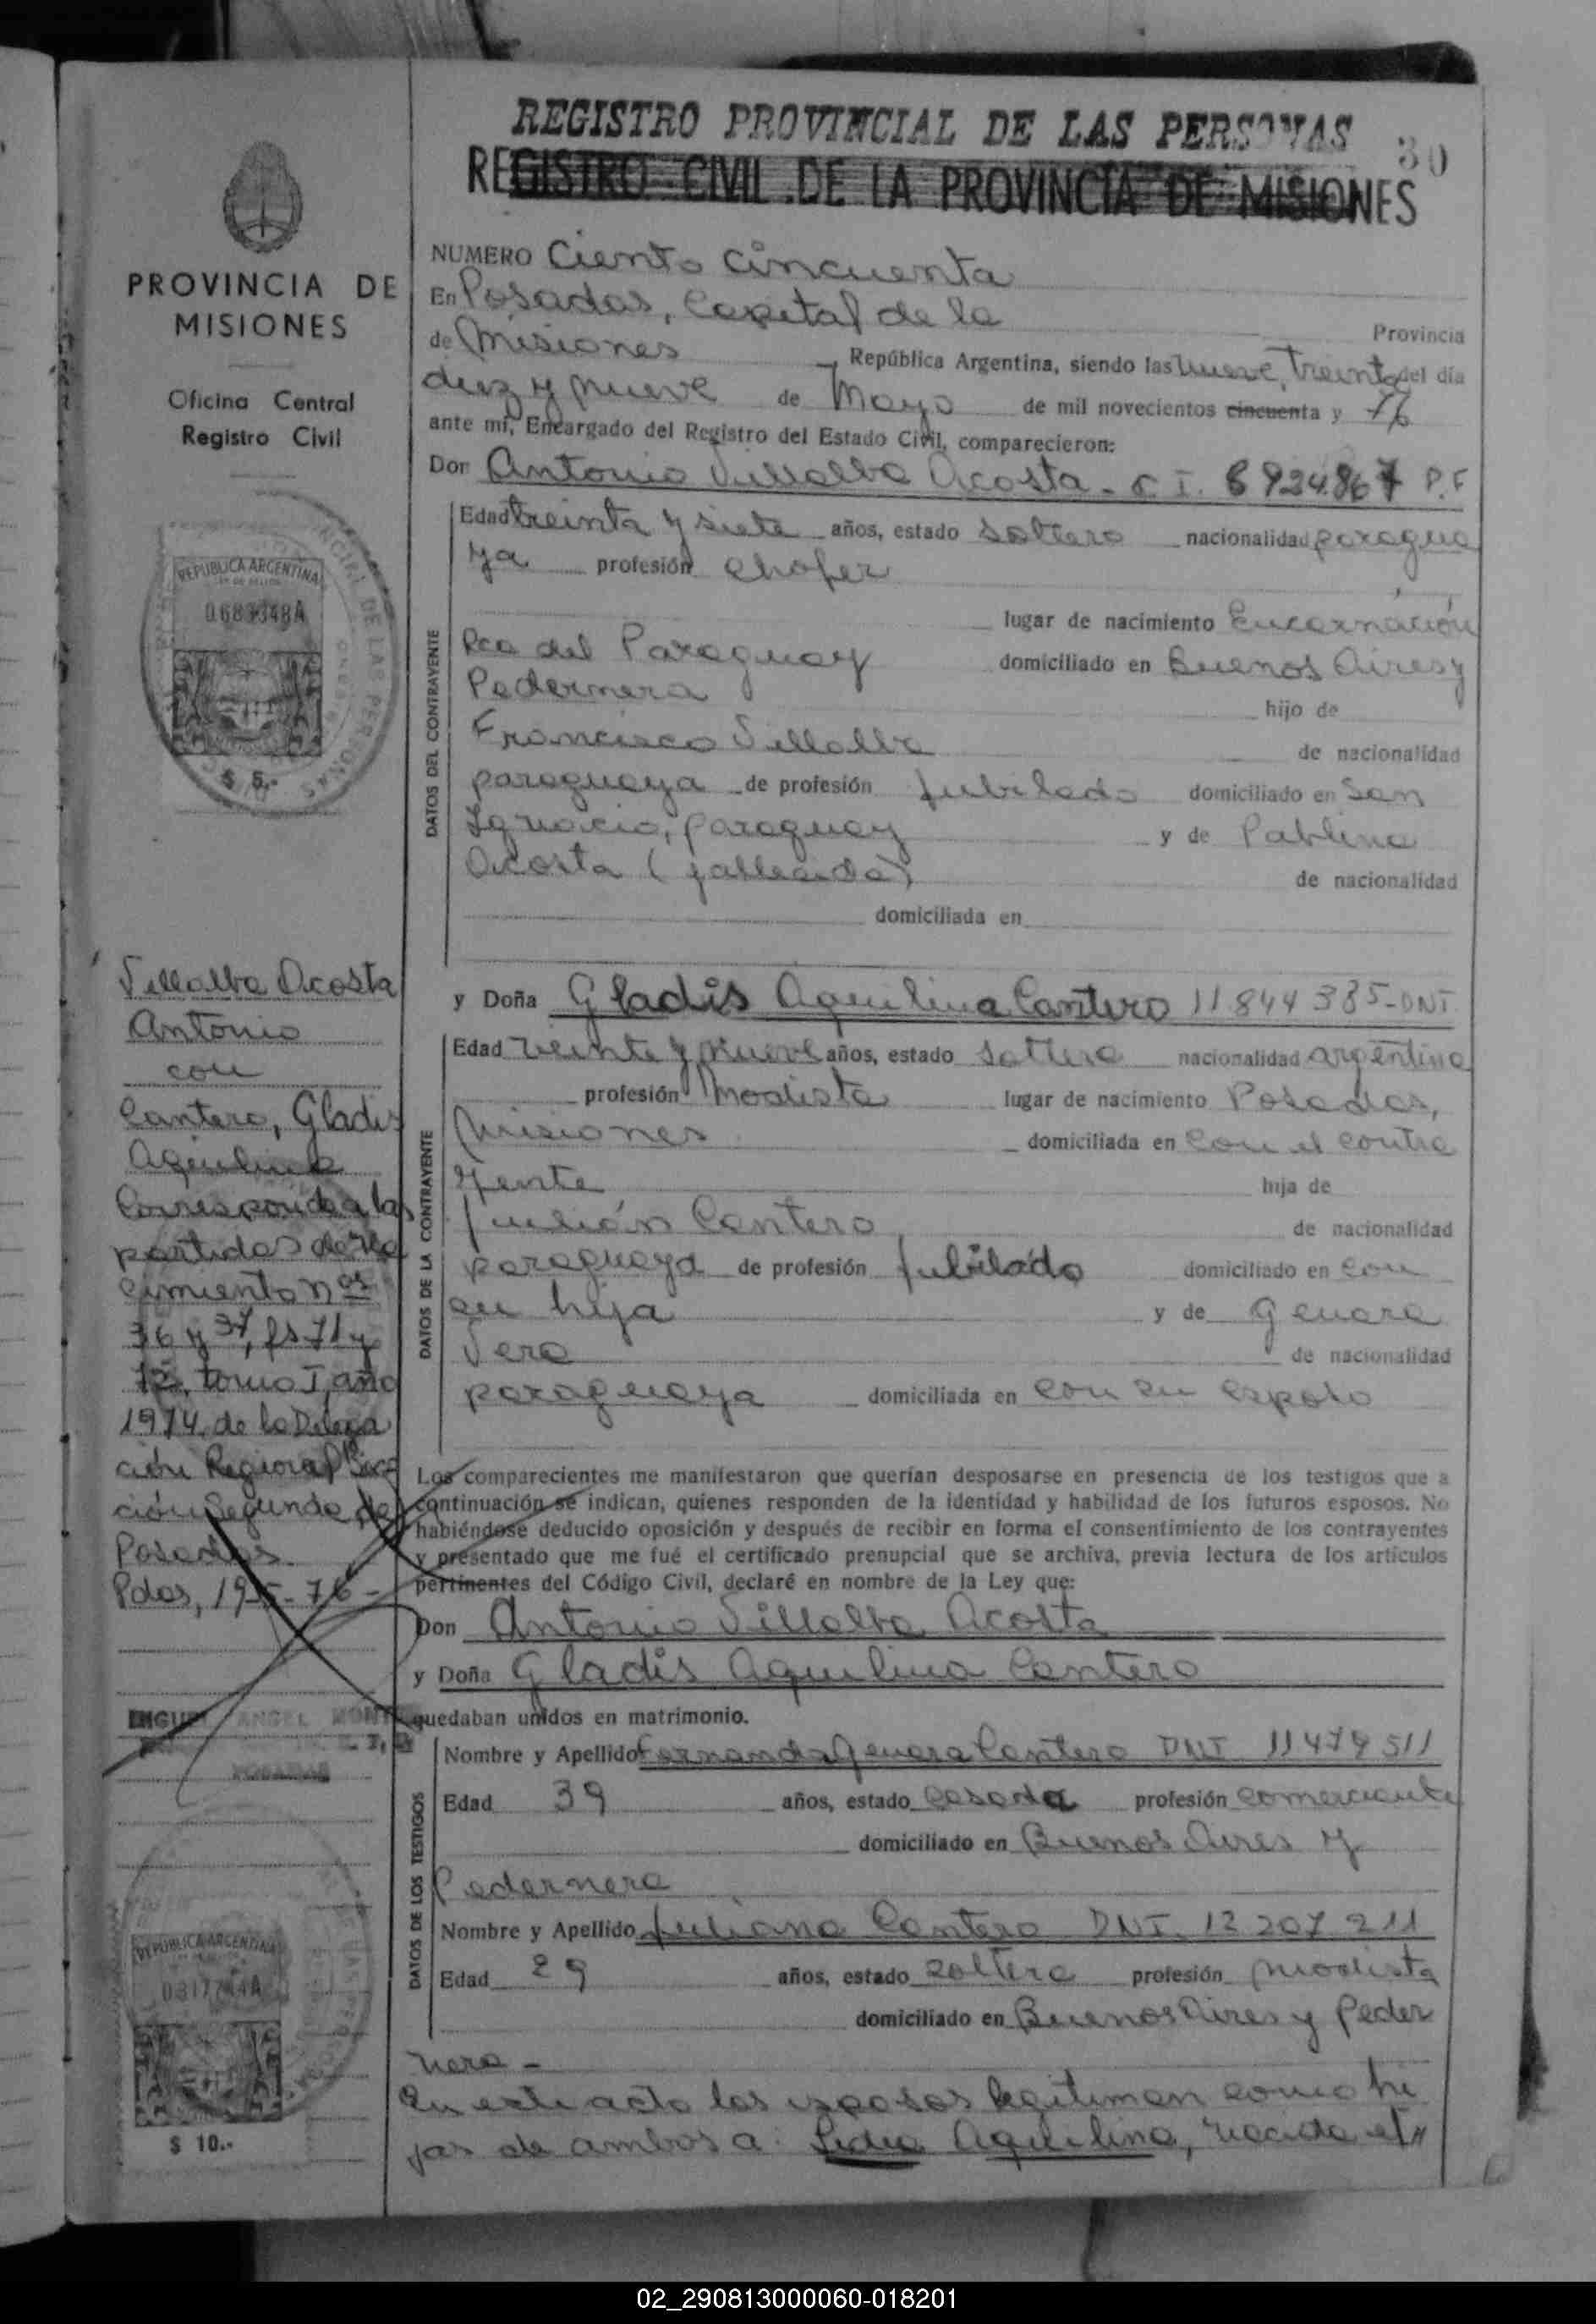 REGISTRO PROVINCIAL DE LAS PERSONAS
30
REGISTRO CIVIL DE LA PROVINCIA DE MISIONES
PROVINCIA DE
MISIONES
Oficina Central
Registro Civil
REPUBLICA ARGENTINA
$ 5.-
Villalba Acosta
Antonio
con
Cantero, Gladis
Aquilina
Corresponde a las
partidas de na
cimiento nos
36 y 37, fs 71 y
72, tomo I, año
1974, de la Delega
ción Regional Sec
ción Segunda de
Posadas
Pdas, 19-5-76-
POSADAS
REPUBLICA ARGENTINA
$ 10.-
NUMERO Ciento cincuenta
En Posadas, Capital de la Provincia
de Misiones República Argentina, siendo las nueve, treinta del día
diez y nueve de Mayo de mil novecientos cincuenta y 76
ante mí, Encargado del Registro del Estado Civil, comparecieron:
Don Antonio Villalba Acosta - C I. 6924.867 P.F
DATOS DEL CONTRAYENTE
Edad treinta y siete años, estado soltero nacionalidad paragua
ya profesión chofer
lugar de nacimiento Encarnación
Rca del Paraguay domiciliado en Buenos Aires y
Pedernera hijo de
Francisco Villalba de nacionalidad
paraguaya de profesión jubilado domiciliado en San
Ignacio, paraguay y de Pablina
Acosta (fallecida) de nacionalidad
domiciliada en
y Doña Gladis Aquilina Cantero 11.844 385-DNI
DATOS DE LA CONTRAYENTE
Edad veinte y nueve años, estado soltera nacionalidad argentina
profesión Modista lugar de nacimiento Posadas,
Misiones domiciliada en con el contra
yente hija de
Julián Cantero de nacionalidad
paraguaya de profesión jubilado domiciliado en con
su hija y de Genara
Vera de nacionalidad
paraguaya domiciliada en con su esposo
Los comparecientes me manifestaron que querían desposarse en presencia de los testigos que a
continuación se indican, quienes responden de la identidad y habilidad de los futuros esposos. No
habiéndose deducido oposición y después de recibir en forma el consentimiento de los contrayentes
y presentado que me fué el certificado prenupcial que se archiva, previa lectura de los artículos
pertinentes del Código Civil, declaré en nombre de la Ley que:
Don Antonio Villalba Acosta
y Doña Gladis Aquilina Cantero
quedaban unidos en matrimonio.
DATOS DE LOS TESTIGOS
Nombre y Apellido Fernanda Genara Cantero DNI 11479511
Edad 39 años, estado casada profesión comerciante
domiciliado en Buenos Aires y
Pedernera
Nombre y Apellido Juliana Cantero DNI. 12 207 211
Edad 29 años, estado soltera profesión modista
domiciliado en Buenos Aires y Peder
nera -
En este acto los esposos legitiman como hi
jas de ambos a: Lidia Aquilina, nacida el
02_290813000060-018201